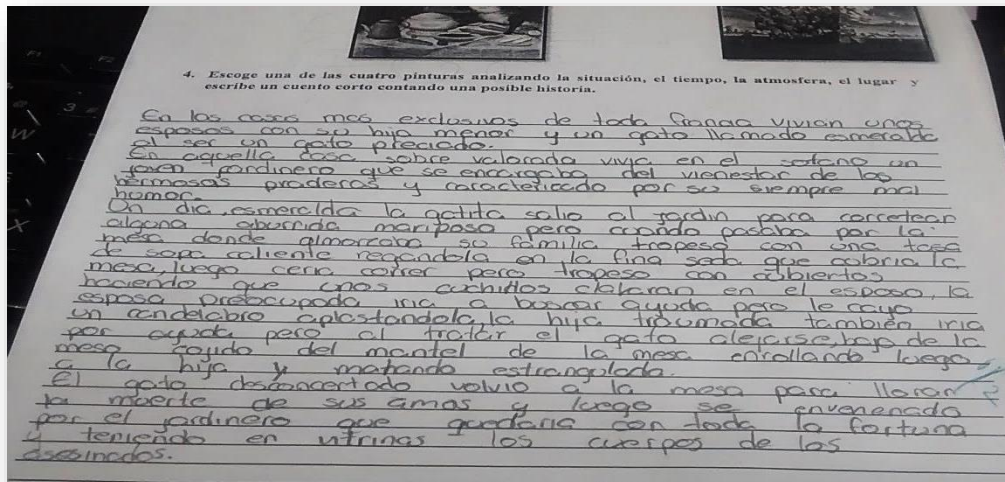 4. Escoge una de las cuatro pinturas analizando la situación, el tiempo, la atmosfera, el lugar y
escribe un cuento corto contando una posible historia.
En las casas mas exclusivas de toda francia vivian unos
esposos con su hija menor y un gato llamado esmeralda
al ser un gato preciado.
En aquella casa sobre valorada vivia en el sotano un
joven jardinero que se encargaba del vienestar de las
hermosas praderas y caracterizado por su siempre mal
humor.
Un dia, esmeralda la gatita salio al jardin para corretear
alguna aburrida mariposa pero cuando pasaba por la
mesa donde almorzaba su familia tropeso con una tasa
de sopa caliente regandola en la fina seda que cubria la
mesa, luego ceria correr pero tropeso con cubiertos
haciendo que unos cuchillos clabaran en el esposo, la
esposa preocupada iria a buscar ayuda pero le cayo
un candelabro aplastandola, la hija traumada tambien iria
por ayuda pero al tratar el gato alejarse, bajo de la
mesa cojido del mantel de la mesa enrollando luego
a la hija y matando estrangulada.
El gato desconcertado volvio a la mesa para llorar
la muerte de sus amos y luego se envenenado
por el jardinero que quedaria con toda la fortuna
y teniendo en vitrinas los cuerpos de los
asesinados.